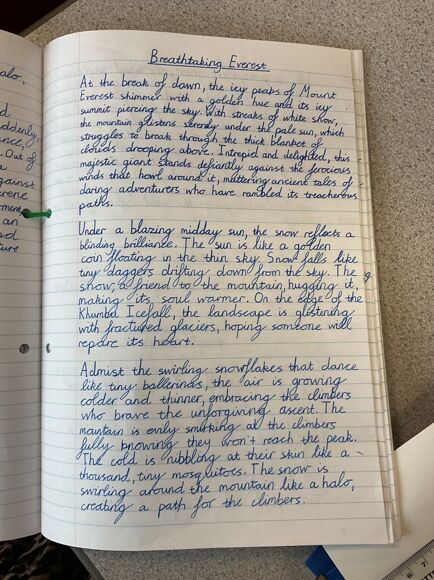 Breathtaking Everest
At the break of dawn, the icy peaks of Mount
Everest shimmer with a golden hue and its icy
summit piercing the sky. With streaks of white snow,
the mountain glistens serenely under the pale sun, which
struggles to break through the thick blanket of
clouds drooping above. Intrepid and delighted, this
majestic giant stands defiantly against the ferocious
winds that howl around it, muttering ancient tales of
daring adventurers who have rambled its treacherous
paths.
Under a blazing midday sun, the snow reflects a
blinding brilliance. The sun is like a golden
coin floating in the thin sky. Snow falls like
tiny daggers drifting down from the sky. The
snow, a friend to the mountain, hugging it,
making its soul warmer. On the edge of the
Khumbu Icefall, the landscape is glistening
with fractured glaciers, hoping someone will
repare its heart.
Admist the swirling snowflakes that dance
like tiny ballerinas, the air is growing
colder and thinner, embracing the climbers
who brave the unforgiving ascent. The
mauntain is evily smirking at the climbers
fully knowing they won't reach the peak.
The cold is nibbling at their skin like a
thousand, tiny mosquitoes. The snow is
swirling around the mountain like a halo,
creating a path for the climbers.